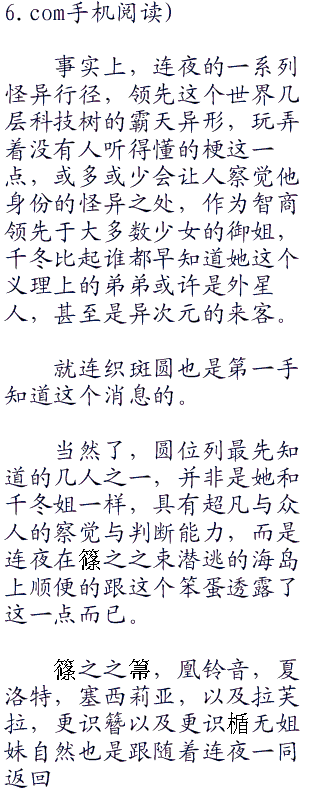 6.com手机阅读)
事实上，连夜的一系列
怪异行径，领先这个世界几
层科技树的霸天异形，玩弄
着没有人听得懂的梗这一
点，或多或少会让人察觉他
身份的怪异之处，作为智商
领先于大多数少女的御姐，
千冬比起谁都早知道她这个
义理上的弟弟或许是外星
人，甚至是异次元的来客。
就连织斑圆也是第一手
知道这个消息的。
当然了，圆位列最先知
道的几人之一，并非是她和
千冬姐一样，具有超凡与众
人的察觉与判断能力，而是
连夜在篠之之束潜逃的海岛
上顺便的跟这个笨蛋透露了
这一点而已。
篠之之箒，凰铃音，夏
洛特，塞西莉亚，以及拉芙
拉，更识簪以及更识楯无姐
妹自然也是跟随着连夜一同
返回